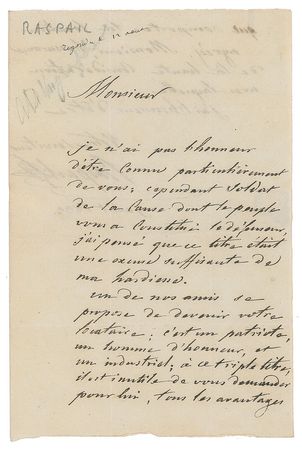 RASPAIL
Monsieur
je n'ai pas l'honneur
d'être connu particulièrement
de vous; cependant soldat
de la Cause dont le peuple
vous a Constitué le défenseur,
j'ai pensé que ce titre était
une excuse suffisante de
ma hardiesse.
un de nos amis se
propose de devenir votre
locataire; c'est un patriote,
un homme d'honneur, et
un industriel; à ce triple titre,
il est inutile de vous demander
pour lui, tous les avantages